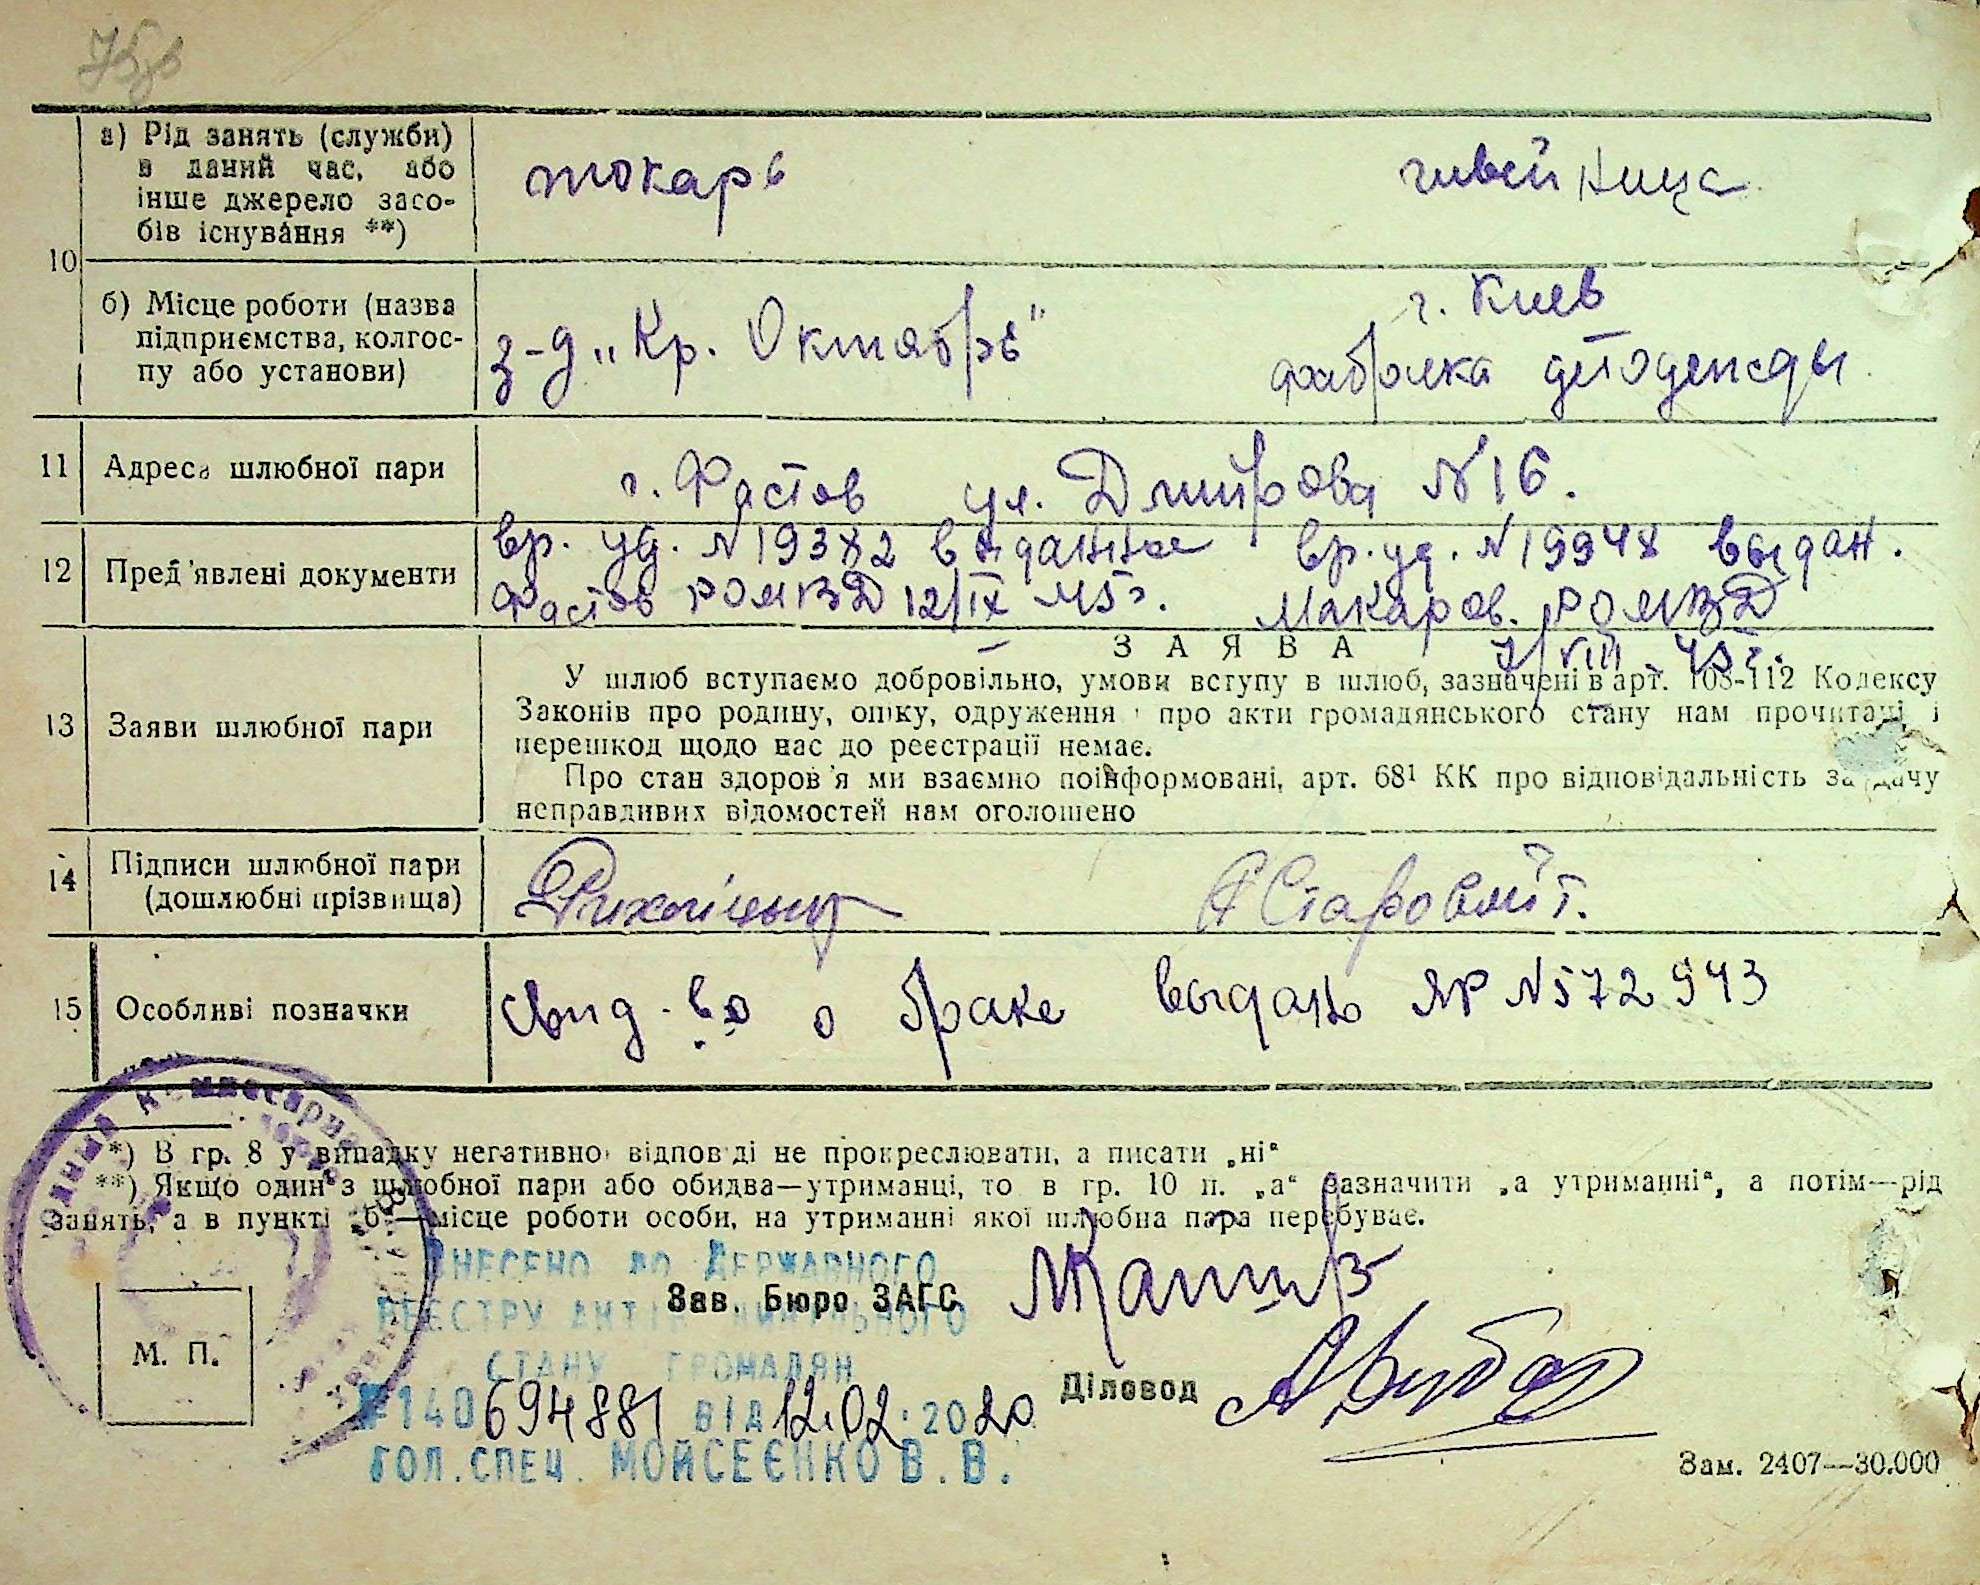 а) Рід занять (служби)
в даний час, або
інше джерело засо-
бів існування **)
токарь
швейница
10
б) Місце роботи (назва
підприємства, колгос-
пу або установи)
з-д „Кр. Октябрь"
г. Киев
фабрика детодежды
11 Адреса шлюбної пари
г. Фастов ул. Дмитрова N 16.
12 Пред'явлені документи
вр. уд. N 19382 выданное
Фастов РОМВД 12/IX
вр. уд. N 19948 выдан.
Макаров. РОМВД
7/VIII 45 г.
13 Заяви шлюбної пари
ЗАЯВА
У шлюб вступаємо добровільно, умови вступу в шлюб, зазначені в арт. 108-112 Кодексу
Законів про родину, опіку, одруження і про акти громадянського стану нам прочитані і
перешкод щодо нас до реєстрації немає.
Про стан здоров'я ми взаємно поінформовані, арт. 68¹ КК про відповідальність за дачу
неправдивих відомостей нам оголошено
14 Підписи шлюбної пари
(дошлюбні прізвища)
Старовойт.
15 Особливі позначки
Свид-во о браке выдано ЯР N 572943
*) В гр. 8 у випадку негативної відповіді не прокреслювати, а писати „ні"
**) Якщо один з шлюбної пари або обидва—утриманці, то в гр. 10 п. „а" зазначити „а утриманні", а потім—рід
занять, а в пункті „б"—місце роботи особи, на утриманні якої шлюбна пара перебуває.
ВНЕСЕНО ДО ДЕРЖАВНОГО
РЕЄСТРУ АКТІВ ЦИВІЛЬНОГО
СТАНУ ГРОМАДЯН
№ 140694881 ВІД 12.02.2020
ГОЛ.СПЕЦ. МОЙСЕЄНКО В.В.
Зав. Бюро ЗАГС
М. П.
Діловод
Зам. 2407—30.000